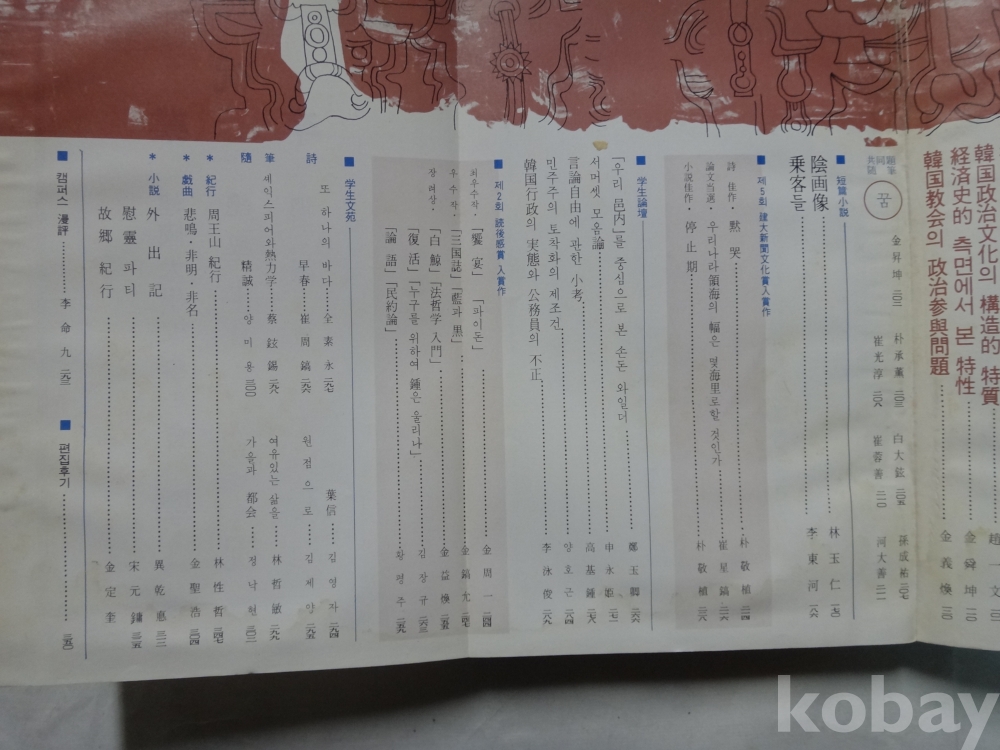 韓国政治文化의 構造的 特質 趙一文
経済史的 측면에서 본 特性 金舜坤
韓国教会의 政治参與問題 金義煥
꿈
金昇坤 朴承薰 白大鉉 孫成祐
崔光淳 崔蓉善 河大善
■ 短篇小説
陰画像 林玉仁
乗客들 李東河
■ 제5회 建大新聞文化賞入賞作
詩 佳作・黙哭 朴敬植
論文当選・우리나라 領海의 幅은 몇 海里로 할 것인가 崔星鎬
小説佳作・停止期 朴敬植
■ 学生論壇
「우리 邑内」를 중심으로 본 손돈 와일더 鄭玉卿
서머셋 모옴論 申永姫
言論自由에 관한 小考 高基鍾
민주주의 토착화의 제조건 양호근
韓国行政의 実態와 公務員의 不正 李泳俊
■ 제2회 読後感賞 入賞作
최우수작・「饗宴」「파이돈」 金周一
우수작・「三国誌」「藍과 黒」 金鎬允
「白鯨」「法哲学 入門」 金益煥
장려상・「復活」「누구를 위하여 鍾은 울리나」 김장규
「論語」「民約論」 황명주
■ 学生文苑
또 하나의 바다 全素永 葉信 김영자
詩 早春 崔周鎬 원점으로 김세양
세익스피어와 熱力学 蔡鉉錫 여유있는 삶을 林哲敏
随筆 精誠 양미용 가을과 都会 정낙현
* 紀行 周王山 紀行 林性哲
* 戯曲 悲鳴・非明・非名 金聖浩
* 小説 外出記 異乾惠
慰靈 파티 宋元鏞
故郷 紀行 金定奎
■ 캠퍼스 漫評 李命九
■ 편집후기
kobay